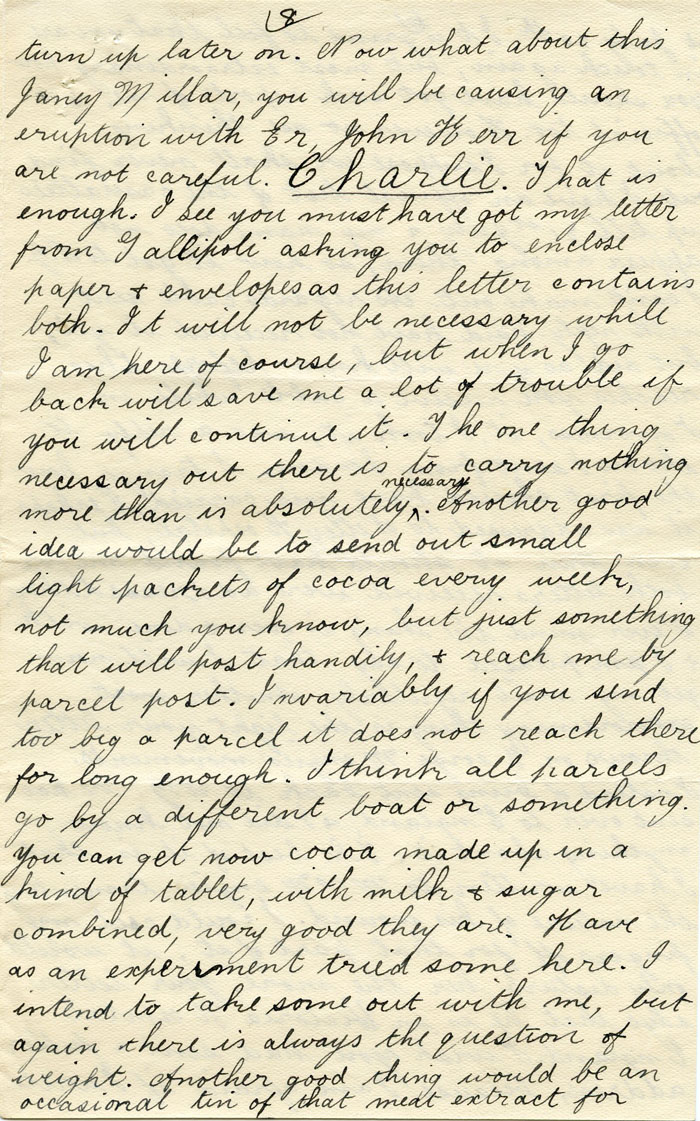 8
turn up later on. Now what about this
Janey Millar, you will be causing an
eruption with Er, John Kerr if you
are not careful. Charlie. That is
enough. I see you must have got my letter
from Gallipoli asking you to enclose
paper & envelopes as this letter contains
both. It will not be necessary while
I am here of course, but when I go
back will save me a lot of trouble if
you will continue it. The one thing
necessary out there is to carry nothing
more than is absolutely necessary. Another good
idea would be to send out small
light packets of cocoa every week,
not much you know, but just something
that will post handily, & reach me by
parcel post. Invariably if you send
too big a parcel it does not reach there
for long enough. I think all parcels
go by a different boat or something.
You can get now cocoa made up in a
kind of tablet, with milk & sugar
combined, very good they are. Have
as an experiment tried some here. I
intend to take some out with me, but
again there is always the question of
weight. Another good thing would be an
occasional tin of that meat extract for